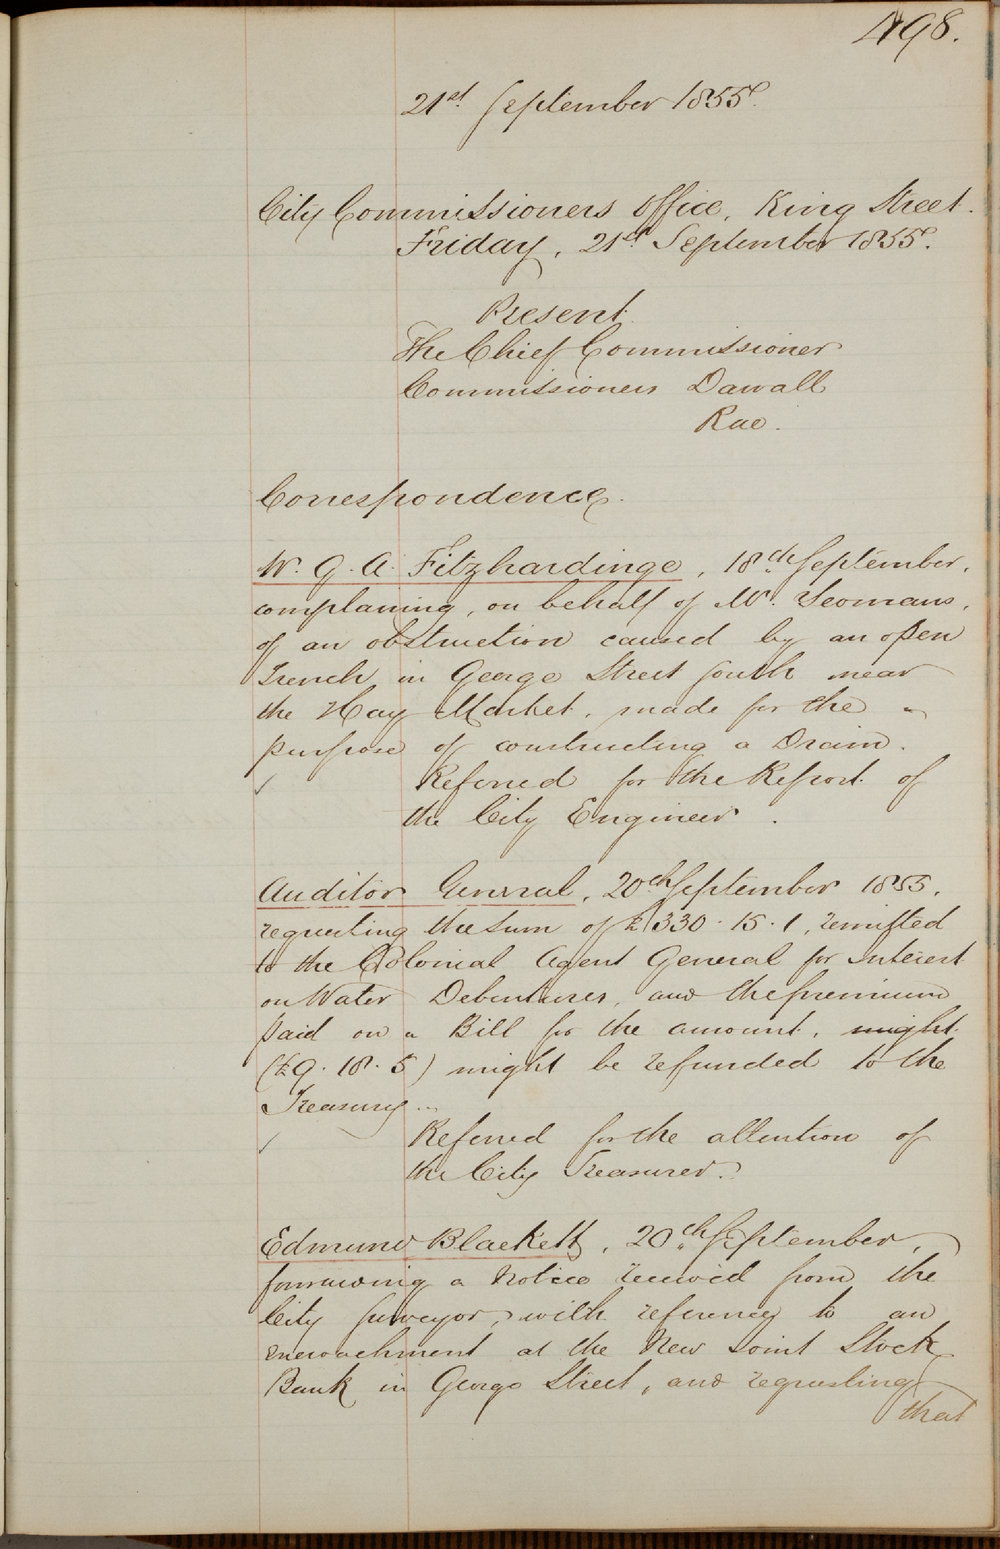 498.
21st September 1855.
City Commissioners Office, King Street.
Friday, 21st September 1855.
Present.
The Chief Commissioner
Commissioners Darvall
Rae.
Correspondence.
W. G. A. Fitzhardinge, 18th September,
complaining, on behalf of Mr. Yeomans,
of an obstruction caused by an open
Trench in George Street South near
the Hay Market, made for the
purpose of constructing a Drain.
Referred for the Report of
the City Engineer.
Auditor General, 20th September 1855,
requesting the sum of £330.15.1, remitted
to the Colonial Agent General for Interest
on Water Debentures, and the premium
paid on a Bill for the amount, might
(£9.18.5) might be refunded to the
Treasury
Referred for the attention of
the City Treasurer.
Edmund Blackett, 20th September,
forwarding a Notice received from the
City Surveyor, with reference to an
encroachment at the New Joint Stock
Bank in George Street, and requesting
that